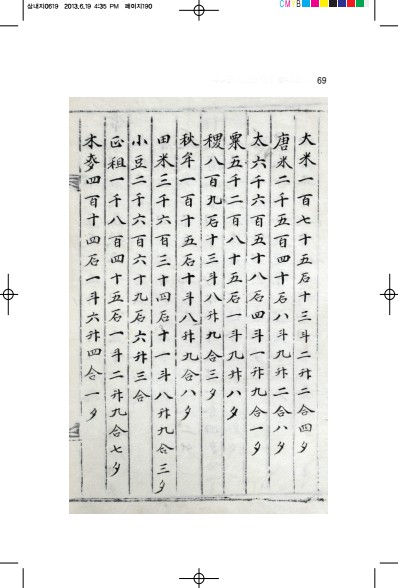 삼내지0619 2013.6.19 4:35 PM 페이지190
CM B
69
大米一百七十五石十三斗二升二合四夕
唐米二千五百四十石八斗九升二合八夕
太六千六百五十八石四斗一升九合一夕
粟五千二百八十五石一斗九升八夕
稷八百九石十三斗八升九合三夕
秋牟一百十五石十斗八升九合八夕
田米三千六百三十四石十一斗八升九合三夕
小豆二千六百六十九石六升三合
正租一千八百四十五石一斗二升九合七夕
木麥四百十四石一斗六升四合一夕